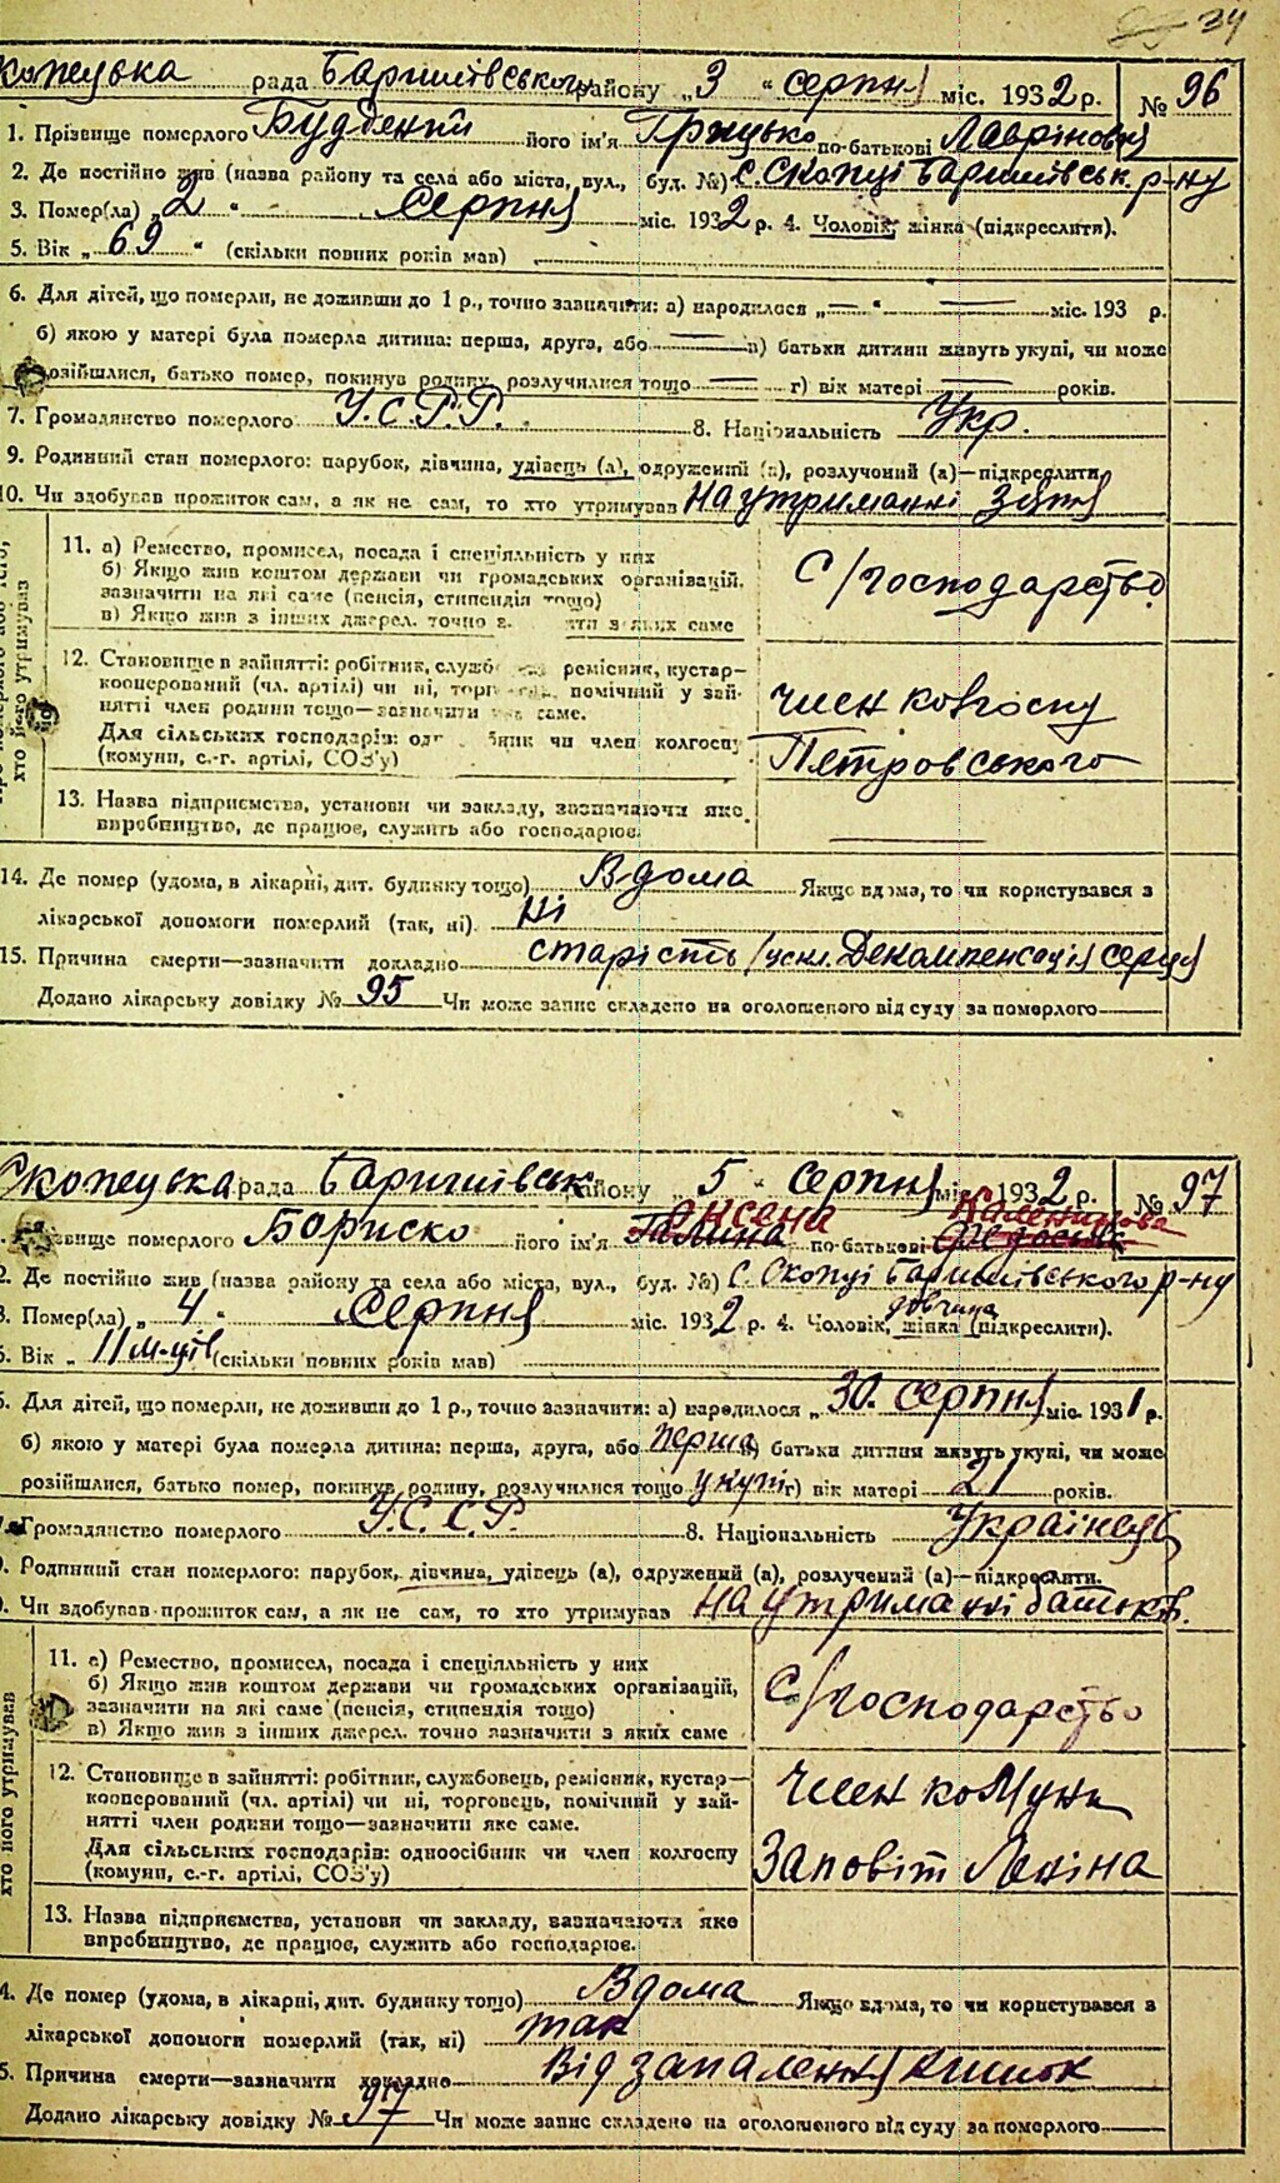 34
рада Баришівського району „3“ серпня міс. 1932 р. № 96
1. Прізвище померлого його ім'я Грицько по-батькові Лаврінович
2. Де постійно жив (назва району та села або міста, вул., буд. №) с. Скопці Баришівськ. р-ну
3. Помер(ла) „2“ Серпня міс. 1932 р. 4. Чоловік, жінка (підкреслити).
5. Вік „69“ (скільки повних років мав)
6. Для дітей, що померли, не доживши до 1 р., точно зазначити: а) народилося „—“ — міс. 193 р.
б) якою у матері була померла дитина: перша, друга, або — в) батьки дитини живуть укупі, чи може
розійшлися, батько помер, покинув родину, розлучилися тощо — г) вік матері — років.
7. Громадянство померлого У.С.Р.Р. 8. Національність Укр.
9. Родинний стан померлого: парубок, дівчина, удівець (а), одружений (а), розлучоний (а)—підкреслити
10. Чи здобував прожиток сам, а як не сам, то хто утримував На утриманні зятя
хто його утримував
11. а) Ремество, промисел, посада і спеціяльність у них
б) Якщо жив коштом держави чи громадських організацій,
зазначити на які саме (пенсія, стипендія тощо)
в) Якщо жив з інших джерел. точно з яких саме
С/господарство
12. Становище в зайнятті: робітник, службовець, ремісник, кустар—
кооперований (чл. артілі) чи ні, торговець, помічний у зай-
нятті член родини тощо—зазначити яке саме.
Для сільських господарів: одноосібник чи член колгоспу
(комуни, с.-г. артілі, СОЗ'у)
член колгоспу
Петровського
13. Назва підприємства, установи чи закладу, зазначаючи яке
виробництво, де працює, служить або господарює.
14. Де помер (удома, в лікарні, дит. будинку тощо) Вдома Якщо вдома, то чи користувався з
лікарської допомоги померлий (так, ні). Ні
15. Причина смерти—зазначити докладно старість Декомпенсація серця
Додано лікарську довідку № 95 Чи може запис складено на оголошеного від суду за померлого
Скопецька рада Баришівськ. району „5“ Серпня міс. 1932 р. № 97
Ксена Каленикова
Прізвище померлого Бориско його ім'я Галина по-батькові
2. Де постійно жив (назва району та села або міста, вул., буд. №) С. Скопці Баришівського р-ну
дівчина
3. Помер(ла) „4“ Серпня міс. 1932 р. 4. Чоловік, жінка (підкреслити).
5. Вік „11 м-ців (скільки повних років мав)
6. Для дітей, що померли, не доживши до 1 р., точно зазначити: а) народилося „30. серпня міс. 1931 р.
б) якою у матері була померла дитина: перша, друга, або перша в) батьки дитини живуть укупі, чи може
розійшлися, батько помер, покинув родину, розлучилися тощо укупі г) вік матері 21 років.
7. Громадянство померлого У.С.С.Р. 8. Національність Українець
9. Родинний стан померлого: парубок, дівчина, удівець (а), одружений (а), розлучений (а)—підкреслити.
Чи здобував прожиток сам, а як не сам, то хто утримував на утриманні батьків.
хто його утримував
11. а) Ремество, промисел, посада і спеціяльність у них
б) Якщо жив коштом держави чи громадських організацій,
зазначити на які саме (пенсія, стипендія тощо)
в) Якщо жив з інших джерел. точно зазначити з яких саме
С/господарство
12. Становище в зайнятті: робітник, службовець, ремісник, кустар—
кооперований (чл. артілі) чи ні, торговець, помічний у зай-
нятті член родини тощо—зазначити яке саме.
Для сільських господарів: одноосібник чи член колгоспу
(комуни, с.-г. артілі, СОЗ'у)
член комуни
Заповіт Леніна
13. Назва підприємства, установи чи закладу, зазначаючи яке
виробництво, де працює, служить або господарює.
4. Де помер (удома, в лікарні, дит. будинку тощо) Вдома Якщо вдома, то чи користувався з
лікарської допомоги померлий (так, ні) так
5. Причина смерти—зазначити докладно Від запалення кишок
Додано лікарську довідку № 97 Чи може запис складено на оголошеного від суду за померлого